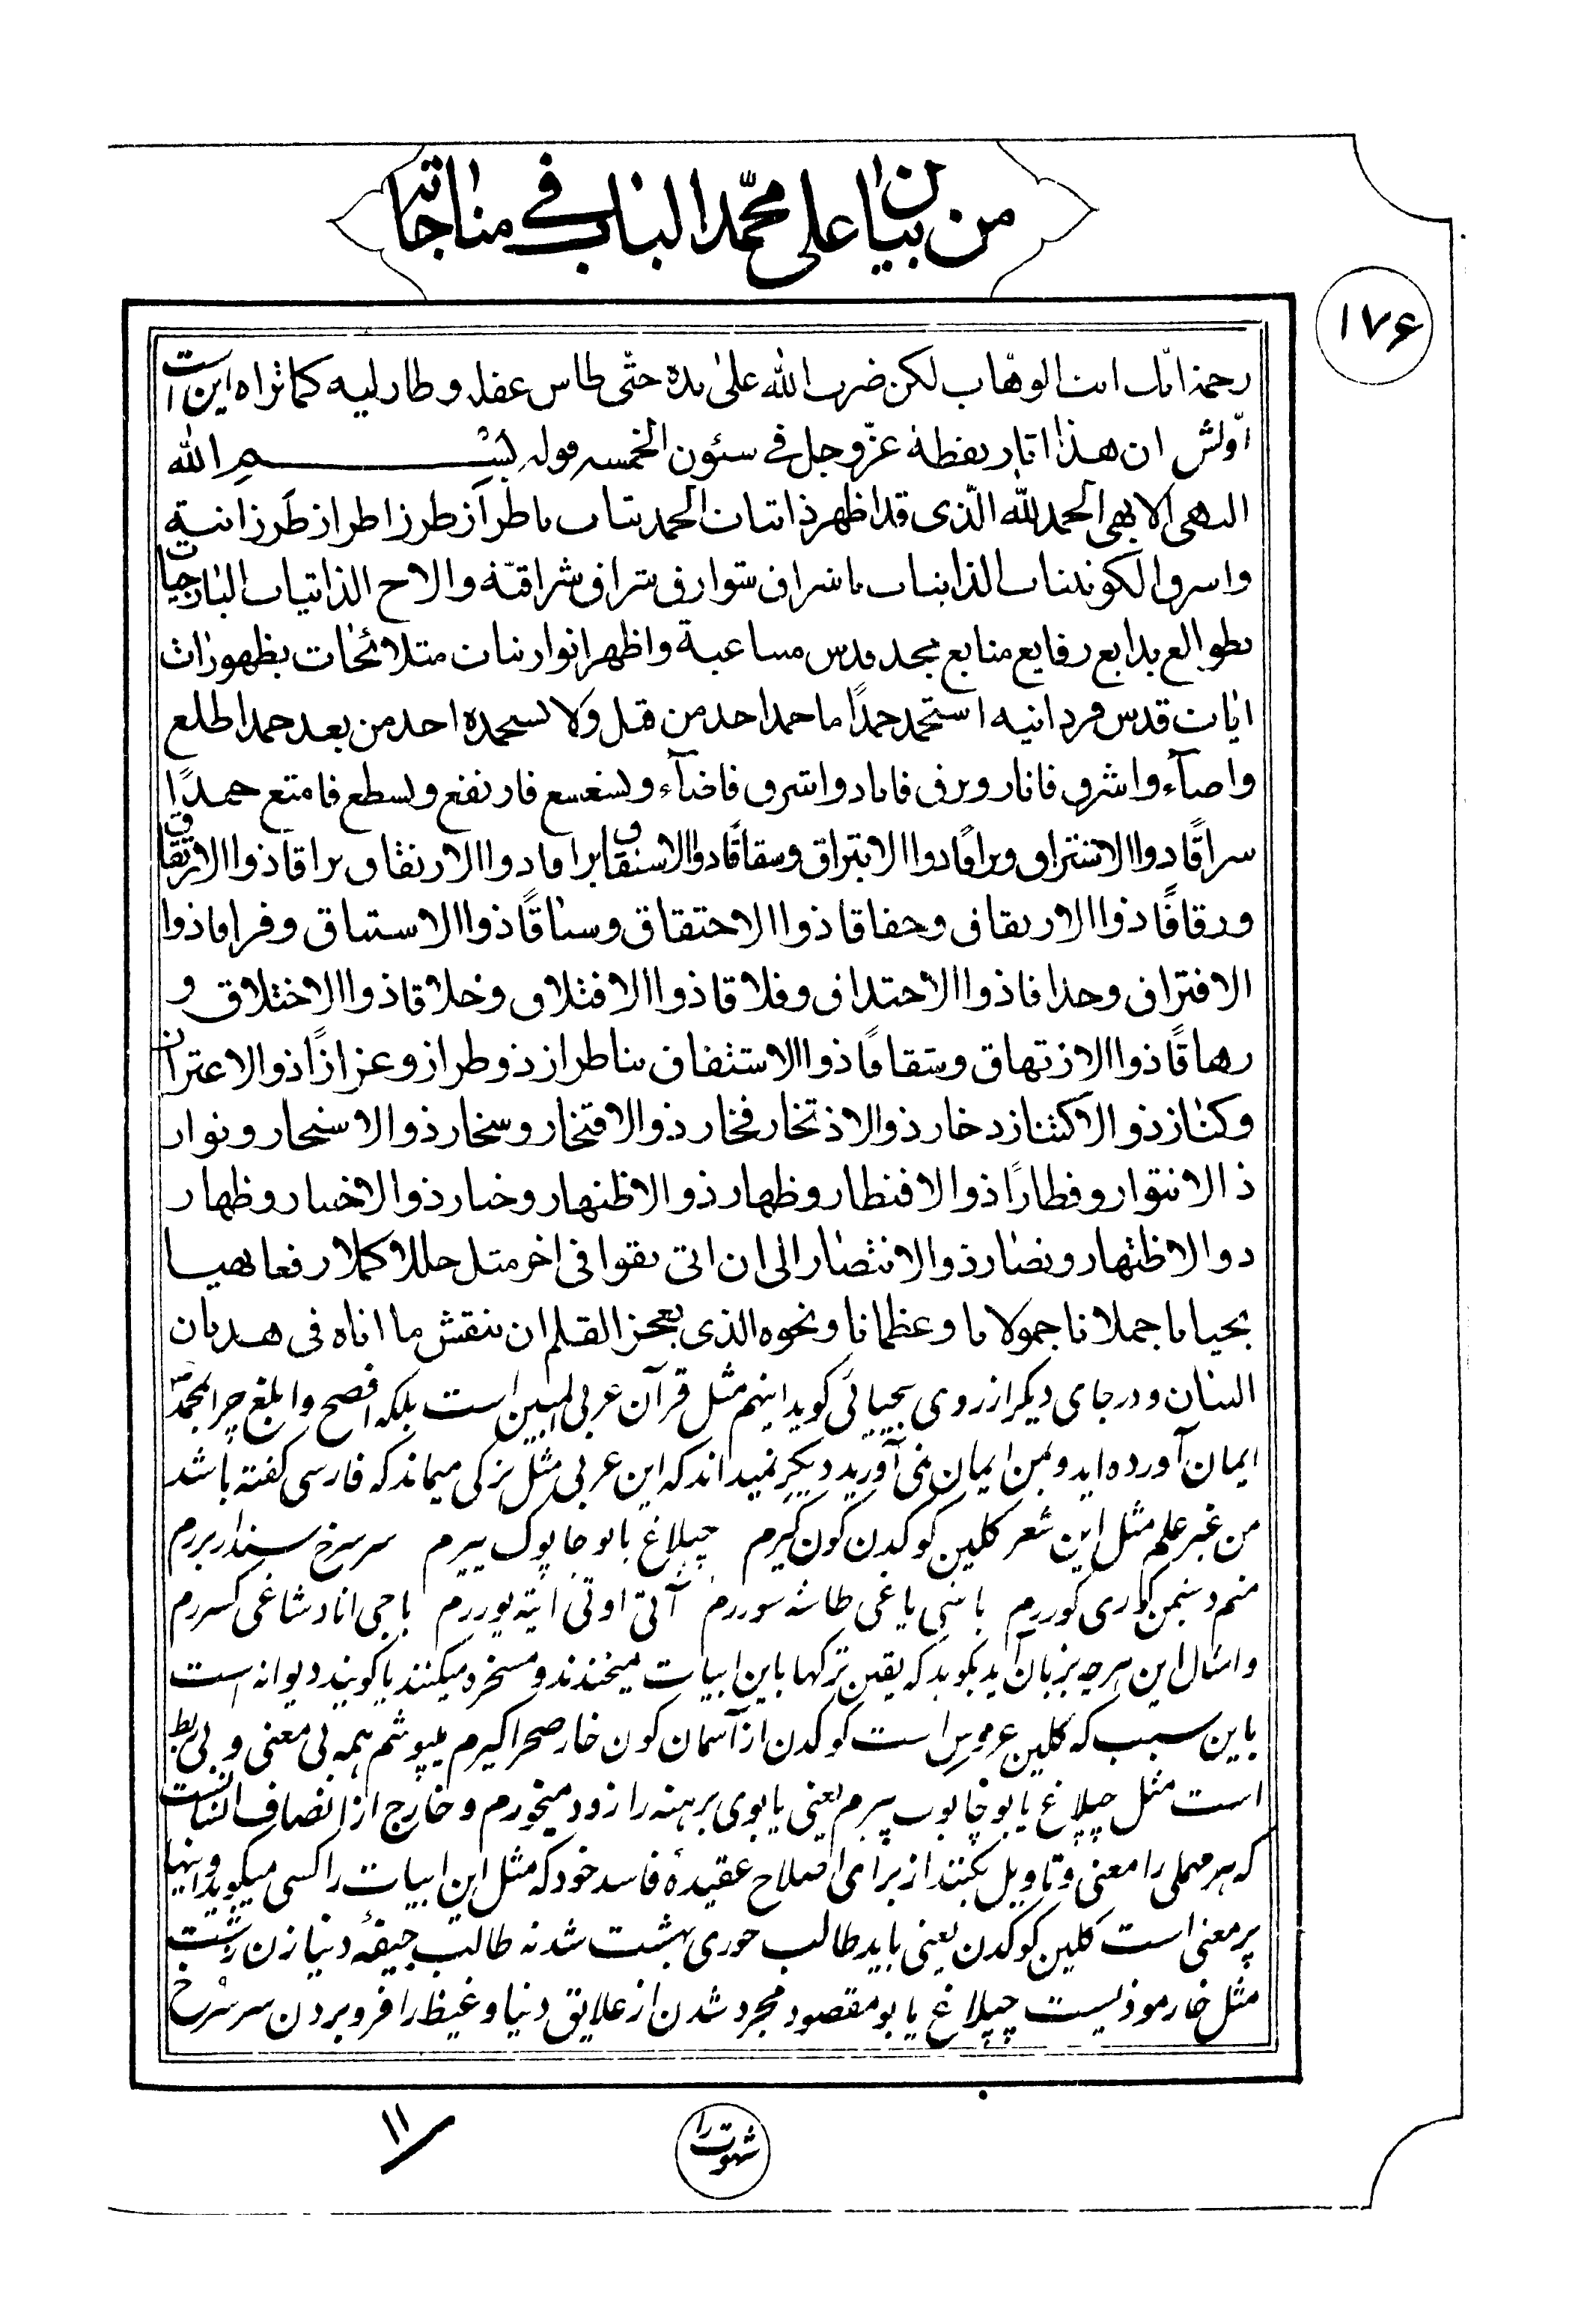 من بيان على محمّد الباب فى مناجاته
١٧۶
رحمة انّك انت الوهّاب لكن ضرب اللّه على يده حتّى طاس عقله و طار لبه كما تراه اين است
اوّلش ان هذا اثار نقطة عزّ و جل فى شئون الخمسه قوله بسم اللّه
البهى الابهى الحمد للّه الّذى قد اظهر ذاتيات الحمديات باطرآز طرز اطراز طرزانية
و اشرق الكونينيات الذاتيات باشراق شوارق شراق شراقيّة و الاح الذاتيات البازجيات
بطوالع بدايع رقايع منايع مجد قدس مساعية و اظهر انواريات متلائحات بظهورات
ايات قدس فردانيه استحمد حمدًا ما حمد احد من قبل و لا يستحمده احد من بعد حمدا طلع
و اضآء و اشرق فانار و برق فاباد و اشرق فاضآء و تشعشع فارتفع و تسطع فامتنع حمدًا
شراقًا ذوا الاشتراق و براقًا ذوا الابتراق و شقاقًا ذوا الاشتقاق براقا ذوا الارتقاق براقا ذوا الارتقاق
و رقاقًا ذوا الارتقاق و حقاقا ذوا الاحتقاق و سباقًا ذوا الاستباق و فراقا ذوا
الافتراق و حذاقا ذوا الاحتذاق و فلاقا ذوا الافتلاق و خلاقا ذوا الاختلاق و
رهاقًا ذوا الارتهاق و شقاقًا ذوا الاشتقاق بنا طراز ذو طراز و عزازًا ذو الاعتزاز
و كناز ذو الاكتناز ذخار ذو الاذتخار فخار ذو الافتخار و سخار ذو الاستخار و نوار
ذ الانتوار و فطارًا ذو الافتطار و ظهار ذو الاظتهار و خبار ذو الاختبار و ظهار
ذو الاظتهار و نصار ذو الانتصار الى ان اتى بقوافى اخر مثل جللا كملا رفعا بهيا
بحيانا جملانا جمولانا و عظمانا و نحوه الذى يعجز القلم ان ينقش ما اتاه فى هذيان
البيان و در جاى ديكر از روى بيحيائى كويد اينهم مثل قرآن عربى المبين است بلكه افصح و ابلغ چرا بمحمّد
ايمان آورده ايد و بمن ايمان نمى آوريد ديكر نميداند كه اين عربى مثل تركى ميماند كه فارسى كفته باشد
من غير علم مثل اين شعر كلين كوكدن كون كيرم چپلاغ يابو چاپوك ييرم سر سرخ سندار بردم
منم دشمن كوارى كوررم باشى ياغى طاشه سوررم آتى اوتى ايته يوررم باجى انادشاغى كسررم
و امثال اين هرچه بزبان آيد بكويد كه يقين تركها باين ابيات ميخندند و مسخره ميكنند يا كويند ديوانه است
باين سبب كه كلين عروس است كوكدن از آسمان كون خار صحرا كيرم ميپوشم همه بى معنى و بى ربط
است مثل چپلاغ يابو چابوب ييرم يعنى يابوى برهنه را زود ميخورم و خارج از انصاف انسانيت
كه هر مهملى را معنى و تاويل بكنند از براى اصلاح عقيدهٔ فاسد خود كه مثل اين ابيات را كسى ميكويد و اينها
پر معنى است كلين كوكدن يعنى بايد طالب حورى بهشت شد نه طالب جيفهٔ دنيا زن زشت
مثل خار موذيست چپلاغ يابو مقصود مجرد شدن از علايق دنيا و غيظ را فرو بردن سر سرخ
شهوت را
١١